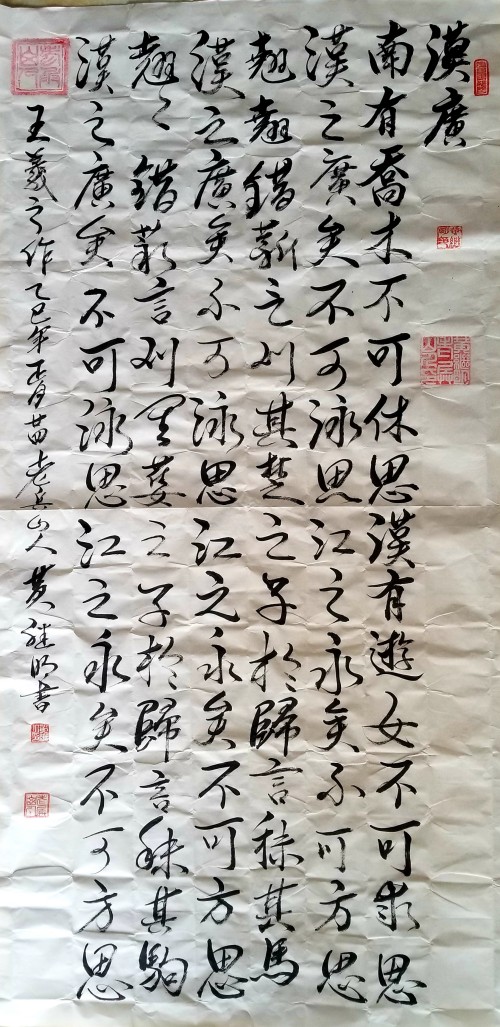 漢廣
南有喬木不可休思漢有遊女不可求思
漢之廣矣不可泳思江之永矣不可方思
翹翹錯薪言刈其楚之子於歸言秣其馬
漢之廣矣不可泳思江之永矣不可方思
翹々錯薪言刈其蔞之子於歸言秣其駒
漢之廣矣不可泳思江之永矣不可方思
王羲之作乙巳年苗老兵山人黄継明書